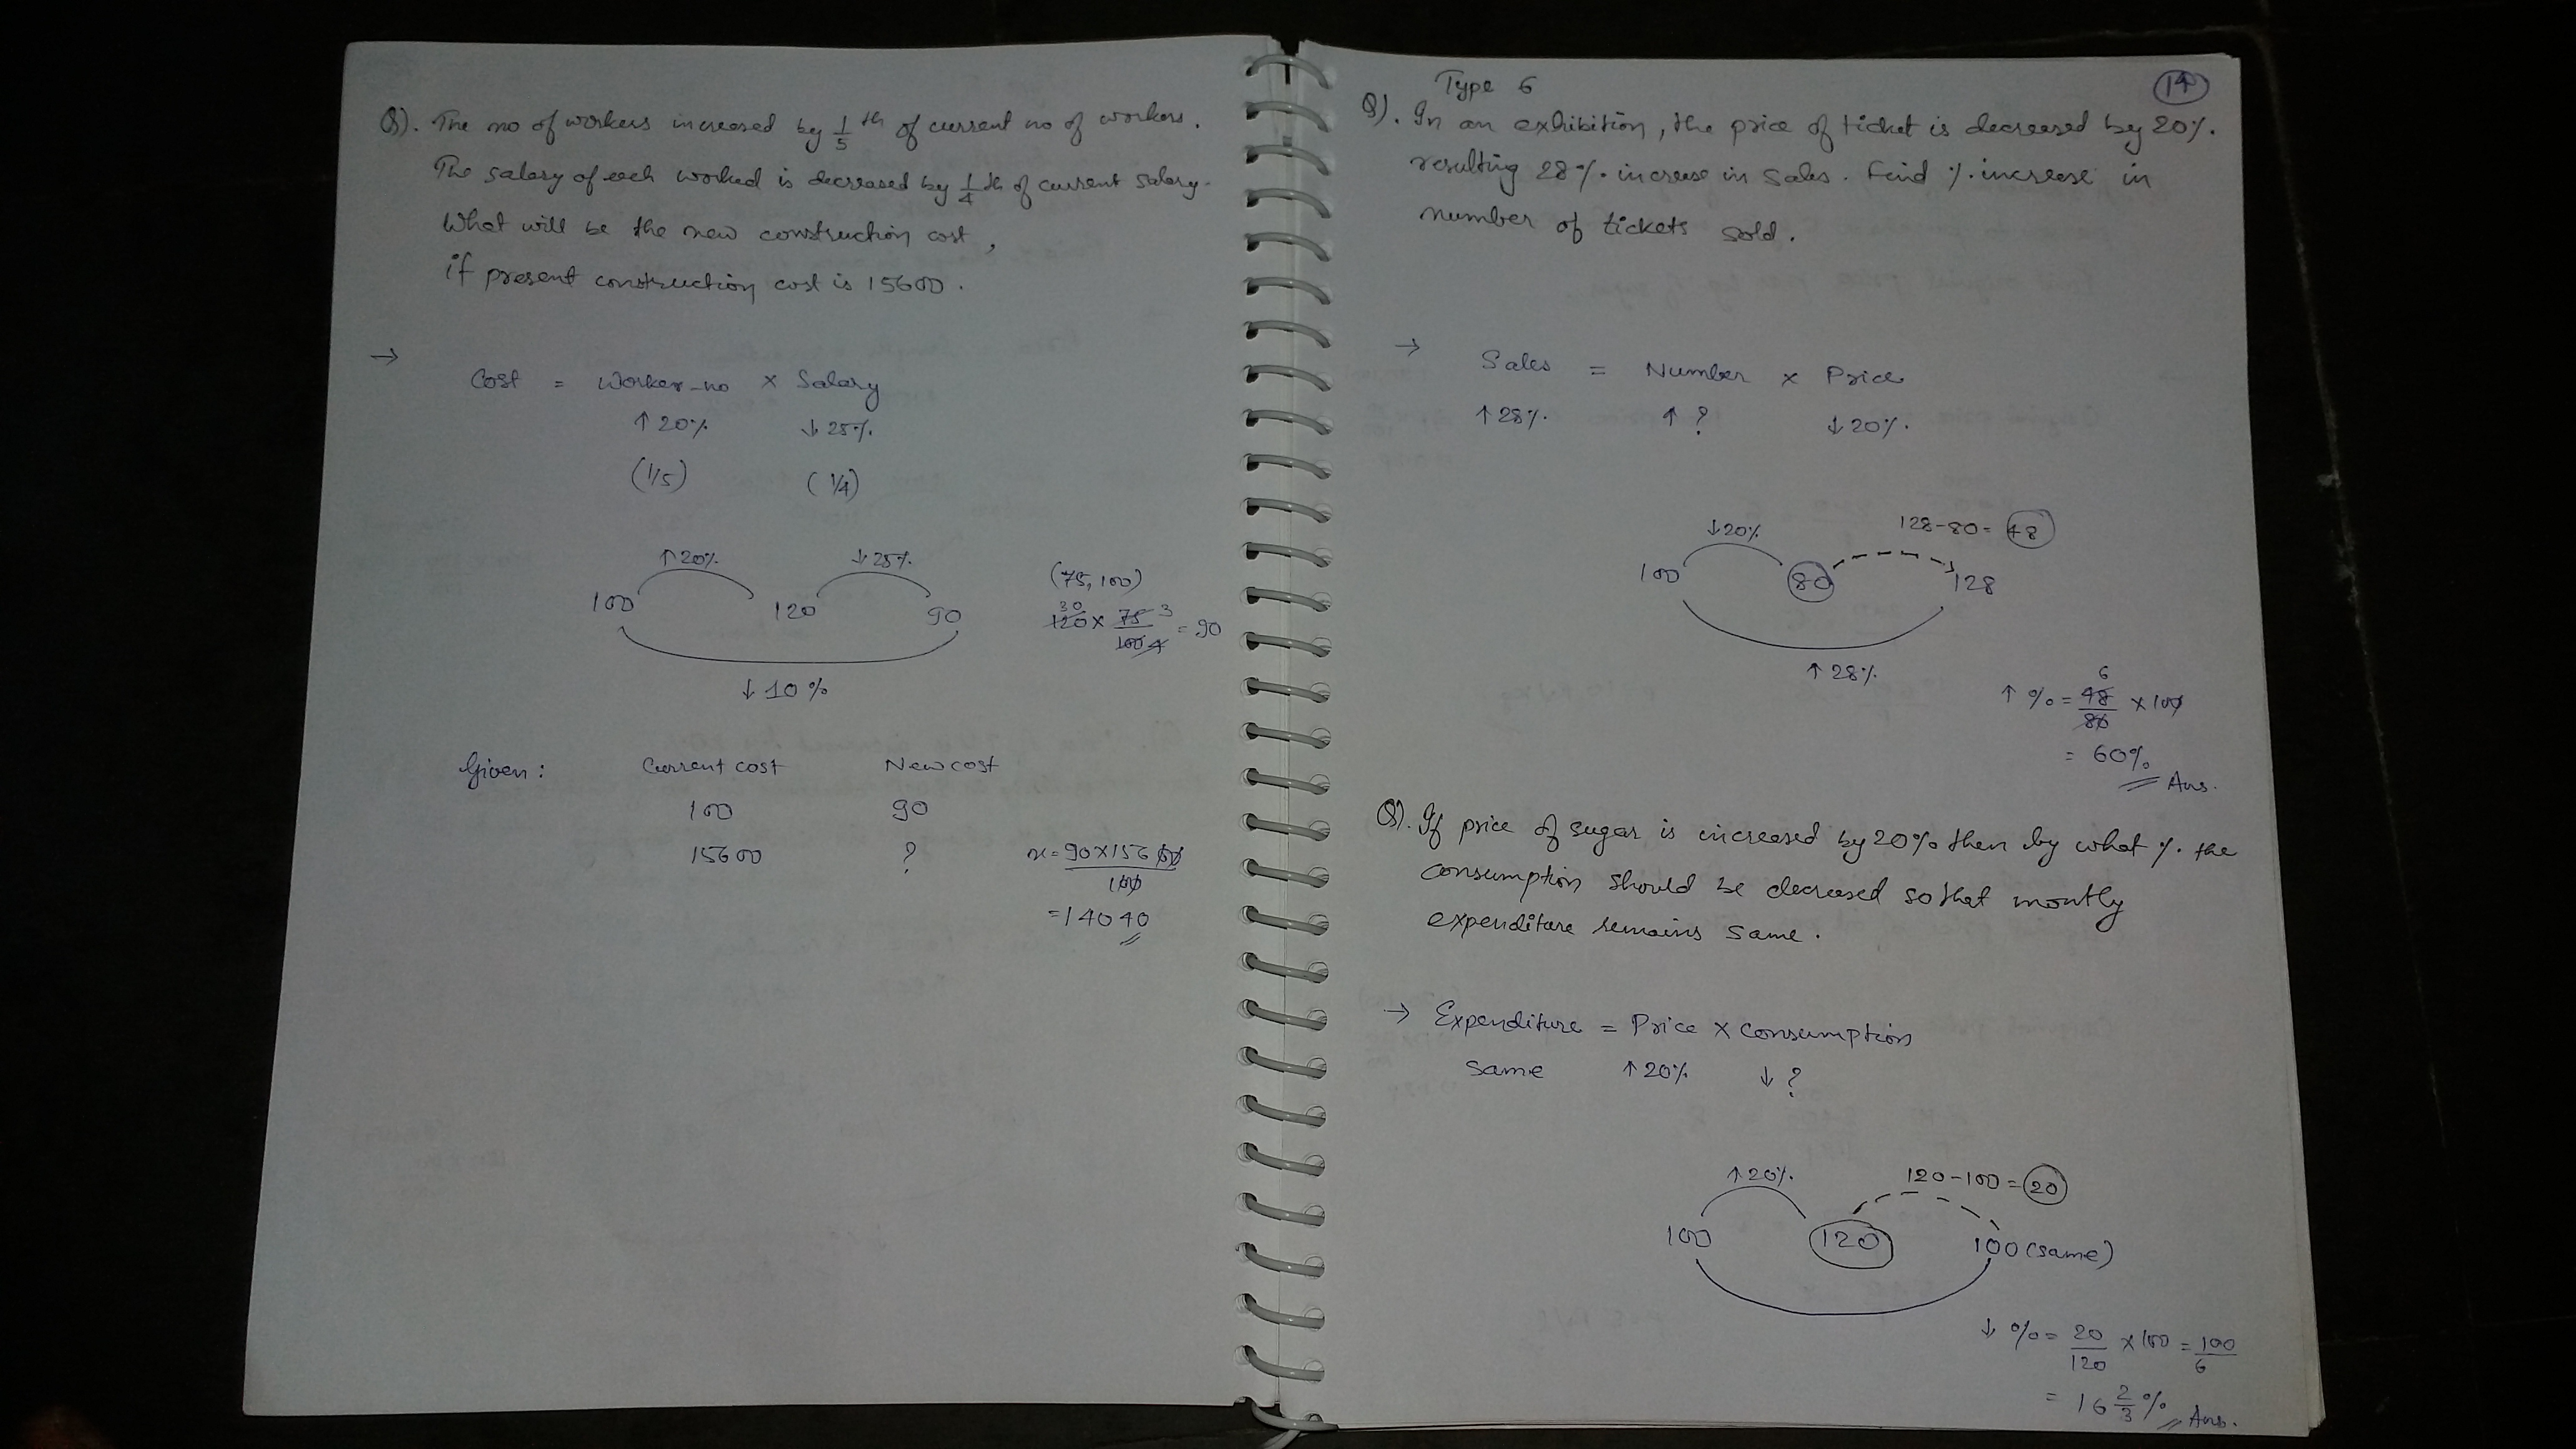 Q). The no of workers increased by 1/5 th of current no of workers.
The salary of each worked is decreased by 1/4 th of current salary.
What will be the new construction cost,
if present construction cost is 15600.
→
Cost = Worker-no × Salary
↑20% ↓25%
(1/5) (1/4)
↑20% ↓25%
100 120 90
↓ 10%
(75, 100)
30 3
120 × 75/100 4 = 90
Given: Current cost New cost
100 90
15600 ?
x = 90×15600
100
= 14040
Type 6
14
Q). In an exhibition, the price of ticket is decreased by 20%.
resulting 28% increase in sales. Find % increase in
number of tickets sold.
→ Sales = Number × Price
↑28% ↑ ? ↓20%.
↓20% 128-80= 48
100 80 128
↑28%
6
↑ % = 48/80 × 100
= 60%
Ans.
Q). If price of sugar is increased by 20% then by what % the
consumption should be decreased so that montly
expenditure remains same.
→ Expenditure = Price × Consumption
same ↑20% ↓ ?
↑20% 120-100 = 20
100 120 100 (same)
↓ % = 20/120 × 100 = 100/6
= 16 2/3 % Ans.